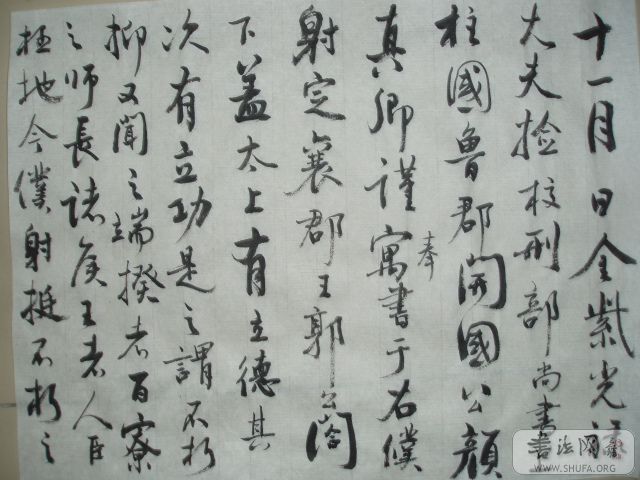 十一月日金紫光
大夫捡校刑部尚書
柱國魯郡開國公顔
真卿謹寓書于右僕
奉
射定襄郡王郭公閤
下盖太上有立德其
次有立功是之謂不朽
抑又聞之端揆者百寮
之師長諸侯王者人臣
極地今僕射挺不朽之
書法网
WWW.SHUFA.ORG